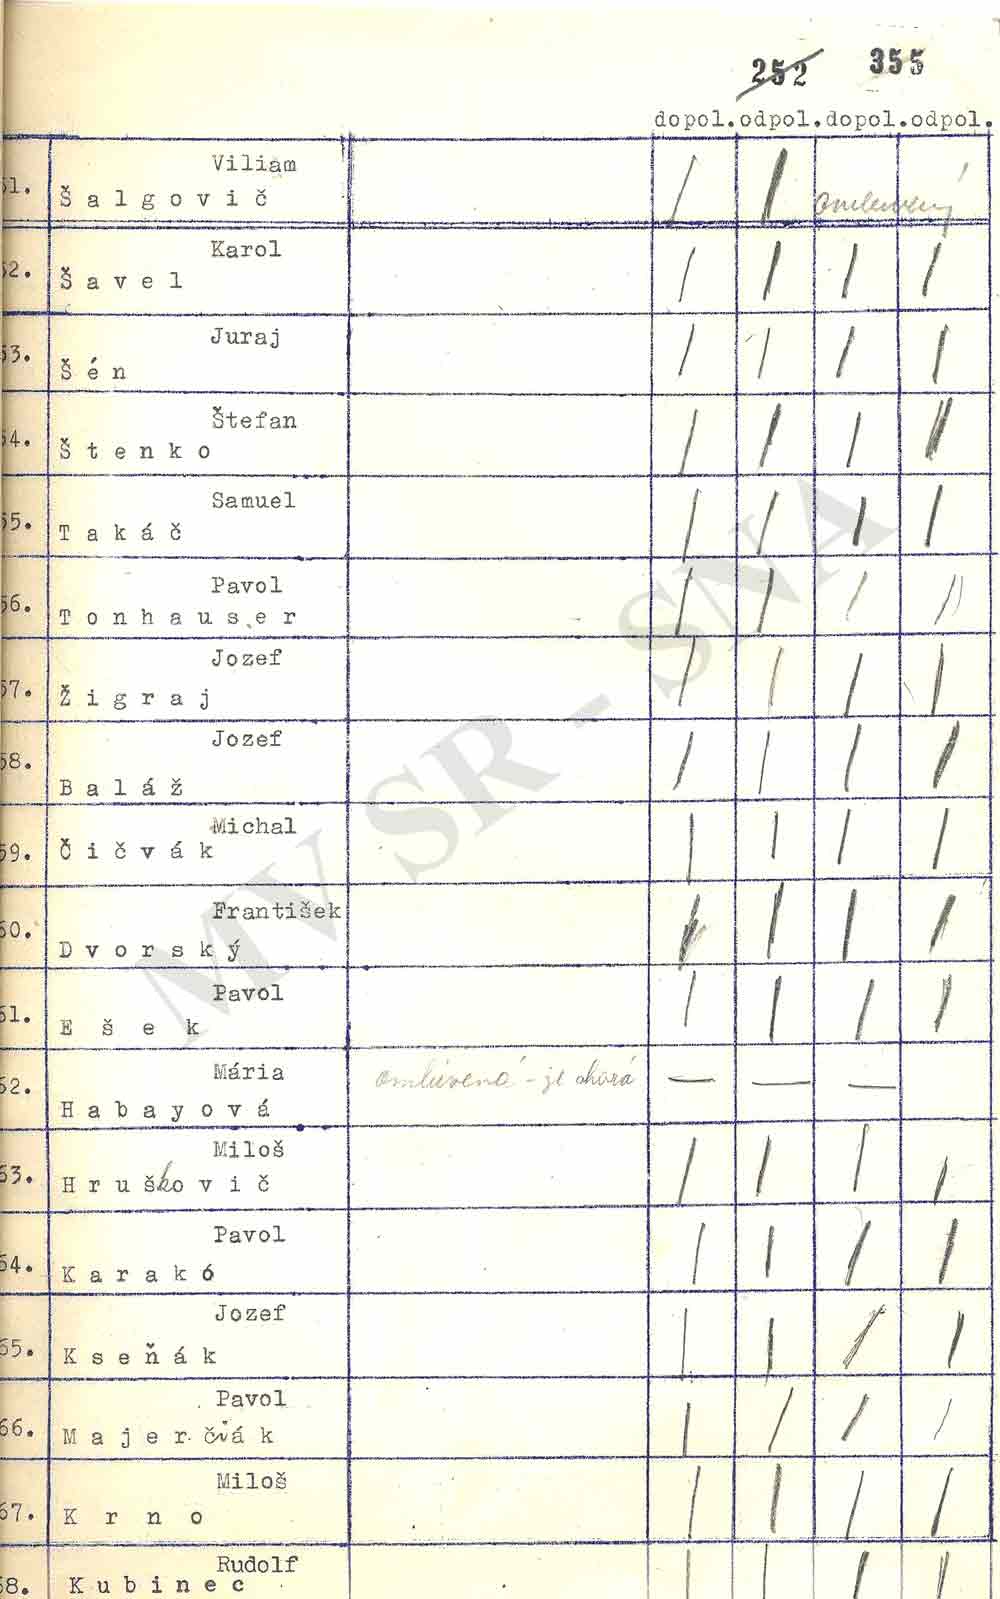 252 355
dopol. odpol. dopol. odpol.
51. Viliam
Šalgovič omluvený
52. Karol
Šavel
53. Juraj
Šén
54. Štefan
Štenko
55. Samuel
Takáč
56. Pavol
Tonhauser
57. Jozef
Žigraj
58. Jozef
Baláž
59. Michal
Čičvák
60. František
Dvorský
61. Pavol
Ešek
62. Mária omluvená - je chorá
Habayová
63. Miloš
Hruškovič
64. Pavol
Karakó
65. Jozef
Kseňák
66. Pavol
Majerčák
67. Miloš
Krno
68. Rudolf
Kubinec
MV SR - SNA